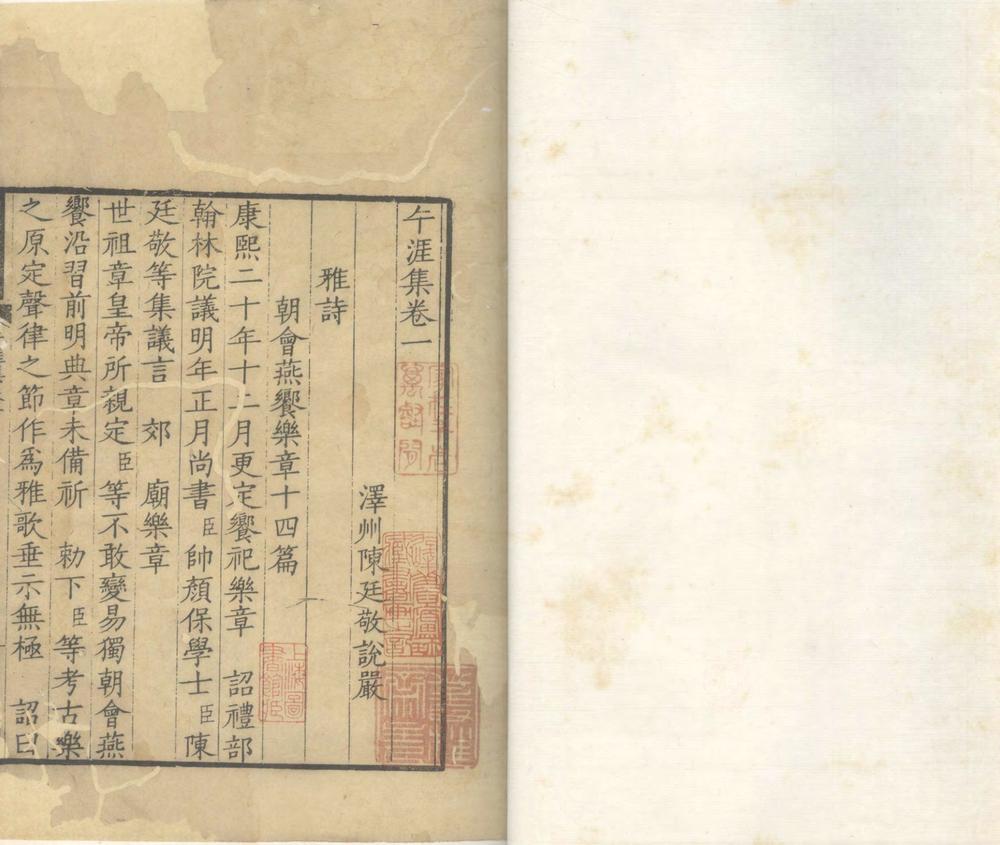 午涯集卷一
澤州陳廷敬說巖
雅詩
朝會燕饗樂章十四篇
康熙二十年十二月更定饗祀樂章　詔禮部
翰林院議明年正月尚書臣帥顏保學士臣陳
廷敬等集議言　郊　廟樂章
世祖章皇帝所親定臣等不敢變易獨朝會燕
饗沿習前明典章未備祈　勅下臣等考古樂
之原定聲律之節作爲雅歌垂示無極　詔曰
上海圖書館藏